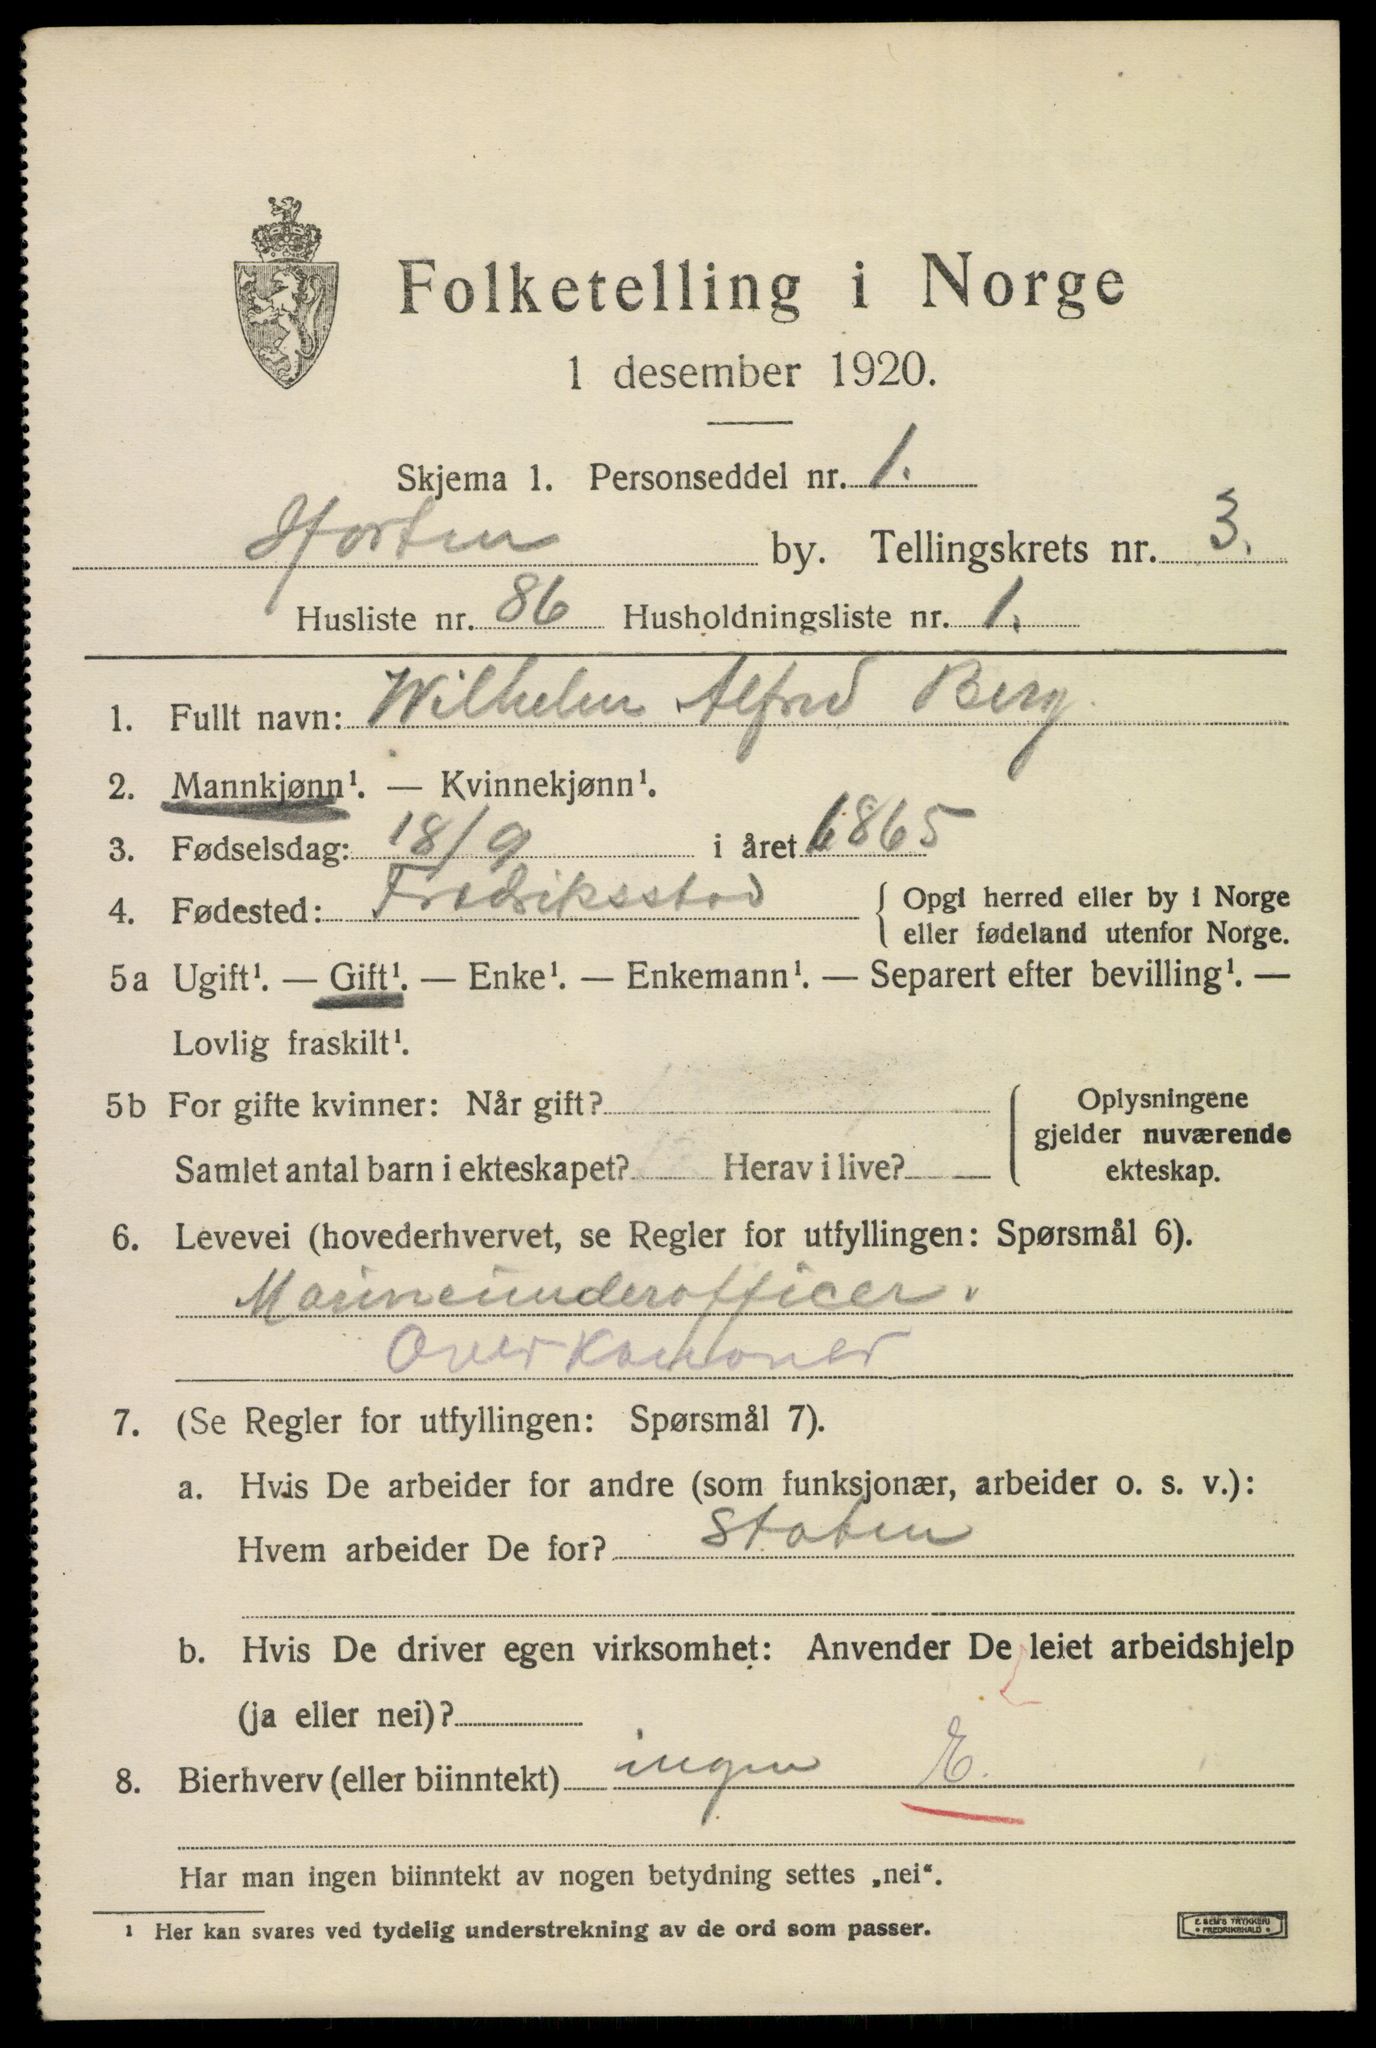 Folketelling i Norge
1 desember 1920.
Skjema 1. Personseddel nr. 1.
Horten by. Tellingskrets nr. 3.
Husliste nr. 86 Husholdningsliste nr. 1.
1. Fullt navn: Wilhelm Alfred Berg.
2. Mannkjønn¹. — Kvinnekjønn¹.
3. Fødselsdag: 18/9 i året 1865
4. Fødested: Fredriksstad { Opgi herred eller by i Norge
eller fødeland utenfor Norge.
5a Ugift¹. — Gift¹. — Enke¹. — Enkemann¹. — Separert efter bevilling¹. —
Lovlig fraskilt¹.
5b For gifte kvinner: Når gift?
Samlet antal barn i ekteskapet? Herav i live?
Oplysningene
gjelder nuværende
ekteskap.
6. Levevei (hovederhvervet, se Regler for utfyllingen: Spørsmål 6).
Marineunderofficer.
Overkanoner
7. (Se Regler for utfyllingen: Spørsmål 7).
a. Hvis De arbeider for andre (som funksjonær, arbeider o. s. v.):
Hvem arbeider De for? Staten
b. Hvis De driver egen virksomhet: Anvender De leiet arbeidshjelp
(ja eller nei)?
8. Bierhverv (eller biinntekt) ingen E.
Har man ingen biinntekt av nogen betydning settes „nei“.
¹ Her kan svares ved tydelig understrekning av de ord som passer.
E. SEM'S TRYKKERI
• FREDRIKSHALD •